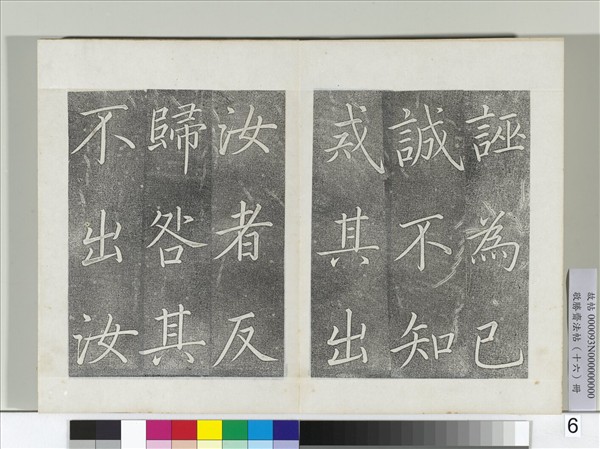 誣為己
誠不知
戒其出
汝者反
歸咎其
不出汝
故帖 000093N000000000
敬勝齋法帖（十六）冊
6